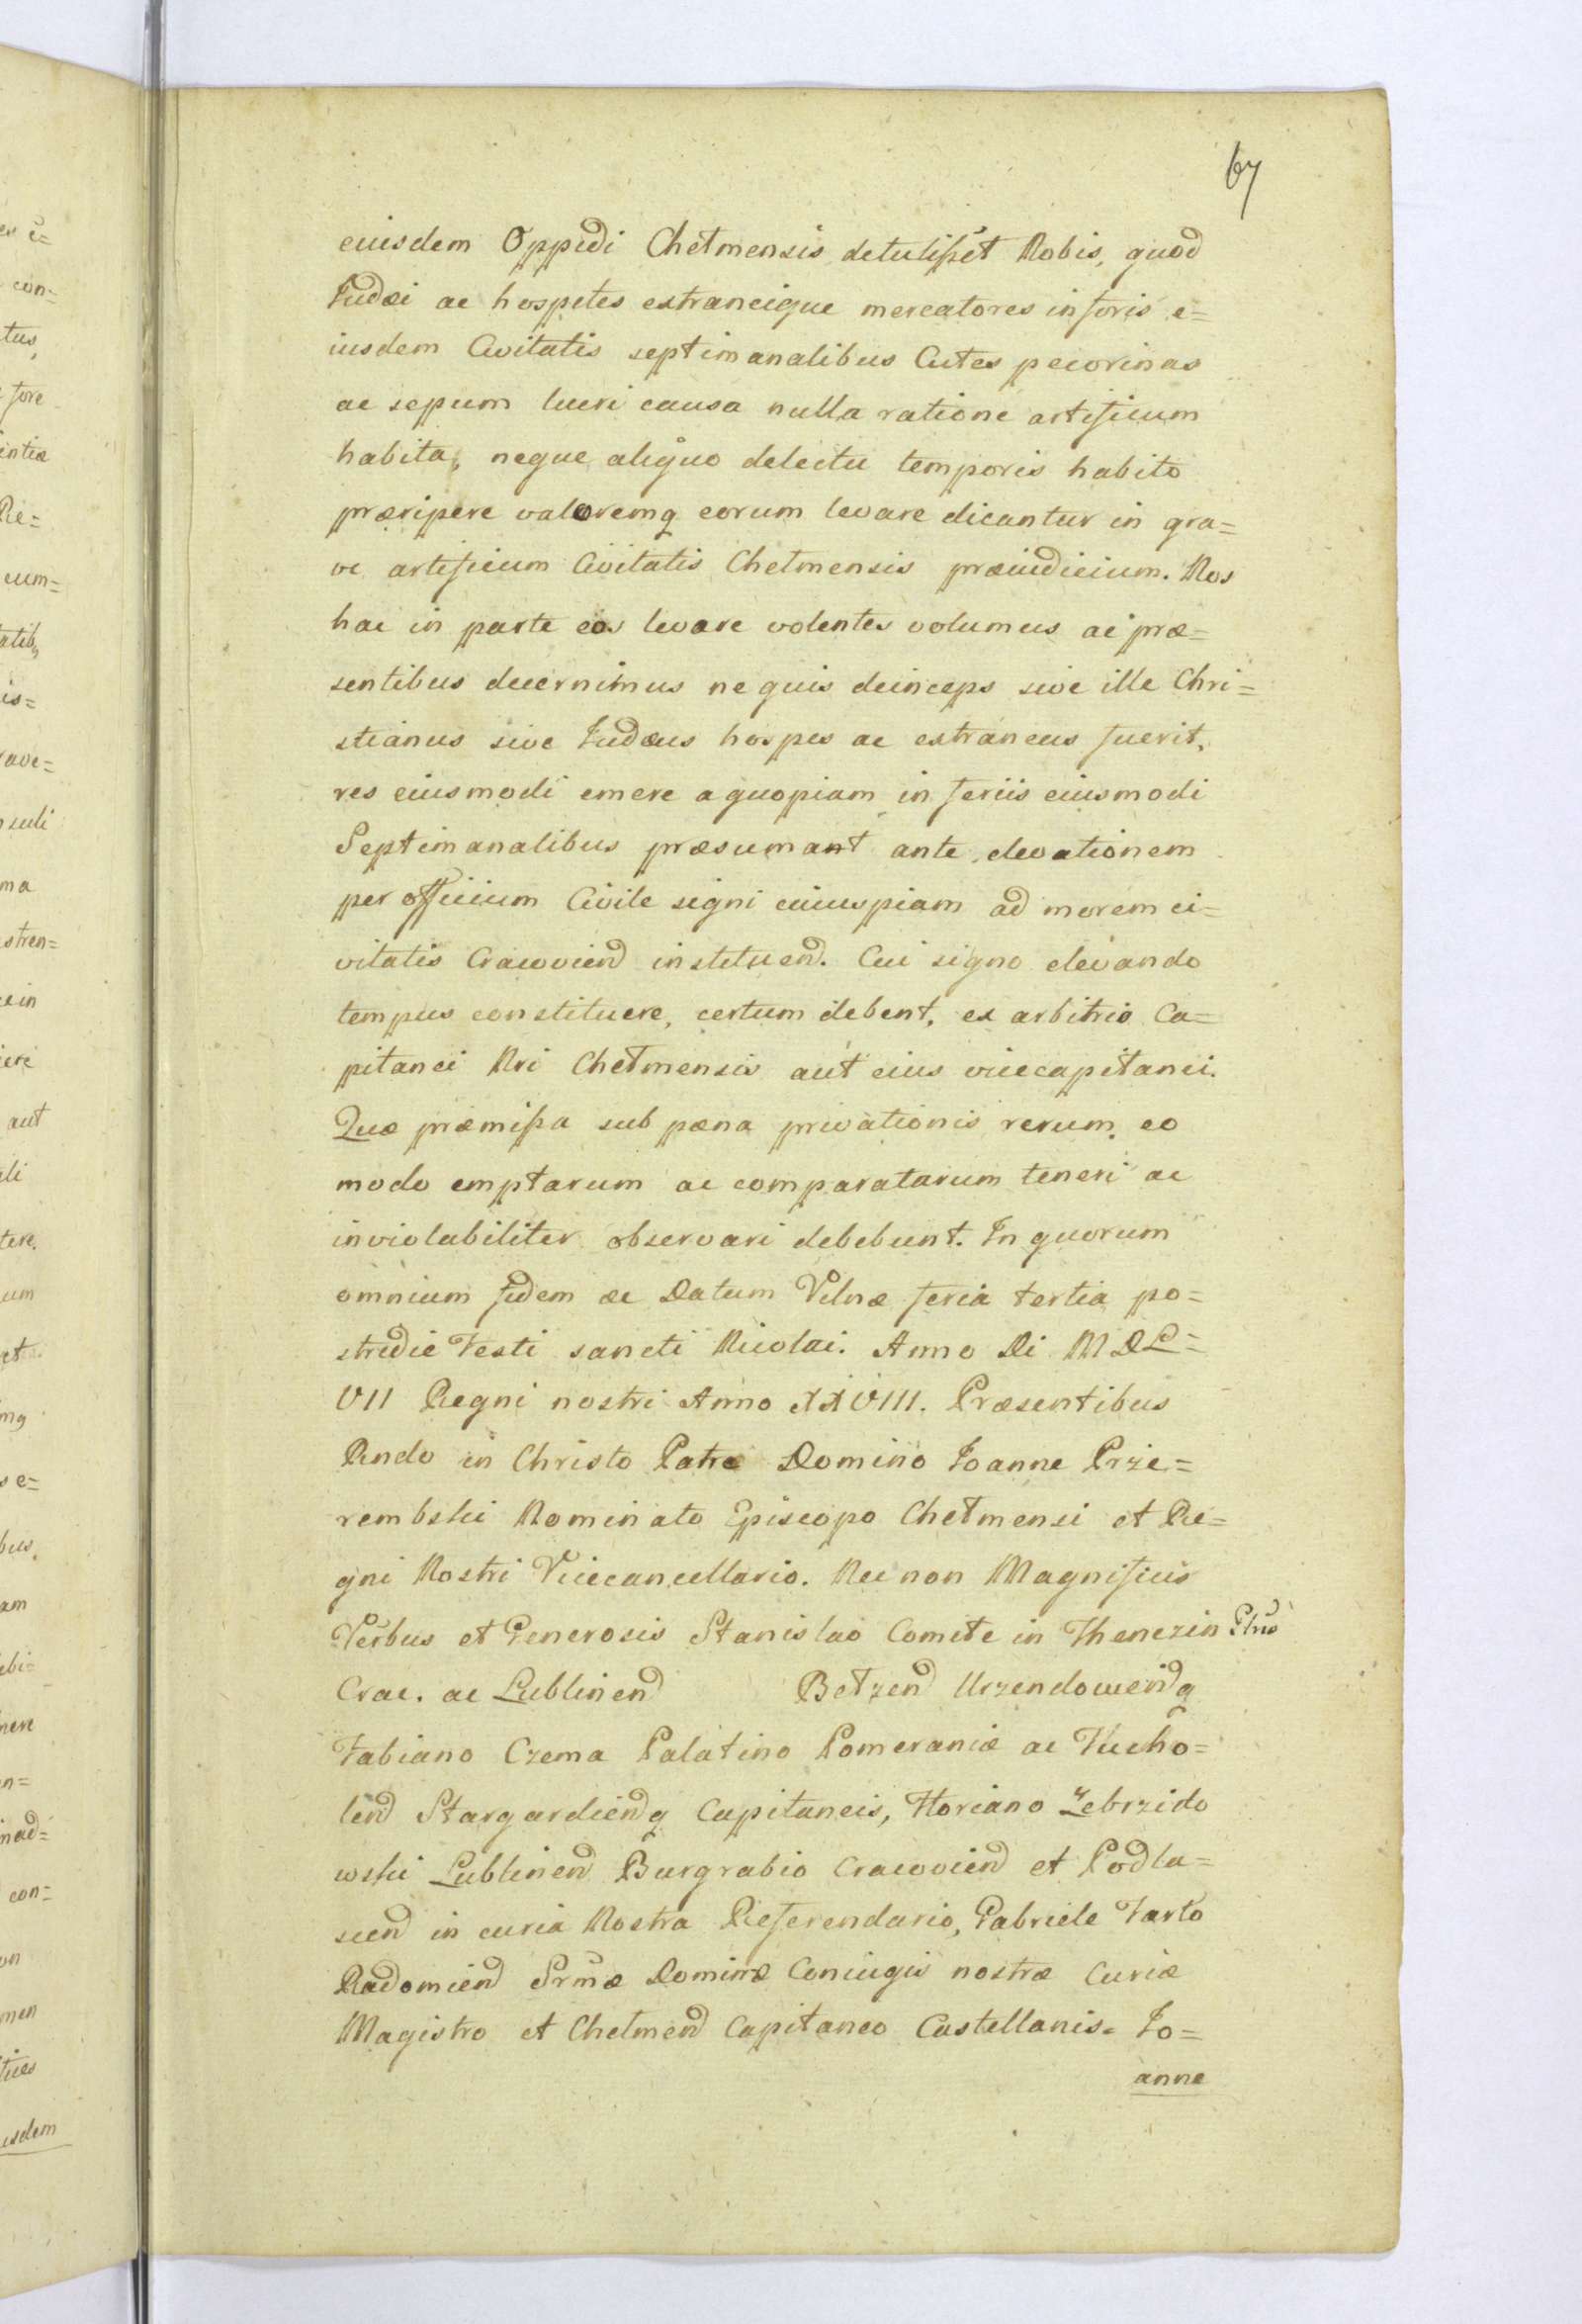 67
eiusdem Oppidi Chełmensis detulißet Nobis, quod
Iudæi ac hospites extraneique mercatores in foris e=
iusdem Civitatis septimanalibus Cutes pecorinas
ac sepum lucri causa nulla ratione artificum
habita, neque aliquo delectu temporis habito
præripere valoremq eorum levare dicantur in gra=
ve artificum Civitatis Chełmensis præiudicium. Nos
hac in parte eos levare volentes volumus ac præ=
sentibus decernimus ne quis deinceps sive ille Chri=
stianus sive Iudæus hospes ac extraneus fuerit,
res eiusmodi emere a quopiam in feriis eiusmodi
Septimanalibus præsumant ante elevationem
per officium Civile signi cuiuspiam ad morem ci=
vitatis Cracovien instituen. Cui signo elevando
tempus constituere, certum debent, ex arbitrio Ca=
pitanei Nri Chełmensis aut eius vicecapitanei.
Quæ præmißa sub pæna privationis rerum eo
modo emptarum ac comparatarum teneri ac
inviolabiliter observari debebunt. In quorum
omnium fidem ac Datum Vilnæ feria tertia po=
stridie Festi sancti Nicolai. Anno Di MDL=
VII Regni nostri Anno XXVIII. Præsentibus
Rndo in Christo Patre Domino Ioanne Prze=
rembski Nominato Episcopo Chełmensi et Re=
gni Nostri Vicecancellario. Nec non Magnificis
Verbus et Generosis Stanislao Comite in Thenczin Plno
Crac. ac Lublinen Bełzen Urzendowienq
Fabiano Czema Palatino Pomeraniæ ac Tucho=
len Stargardienq Capitaneis, Floriano Zebrzido
wski Lublinen Burgrabio Cracovien et Podla=
sien in curia Nostra Referendario, Gabriele Tarło
Radomien Srmæ Dominæ Coniugis nostræ Curiæ
Magistro et Chełmen Capitaneo Castellanis. Io=
anne